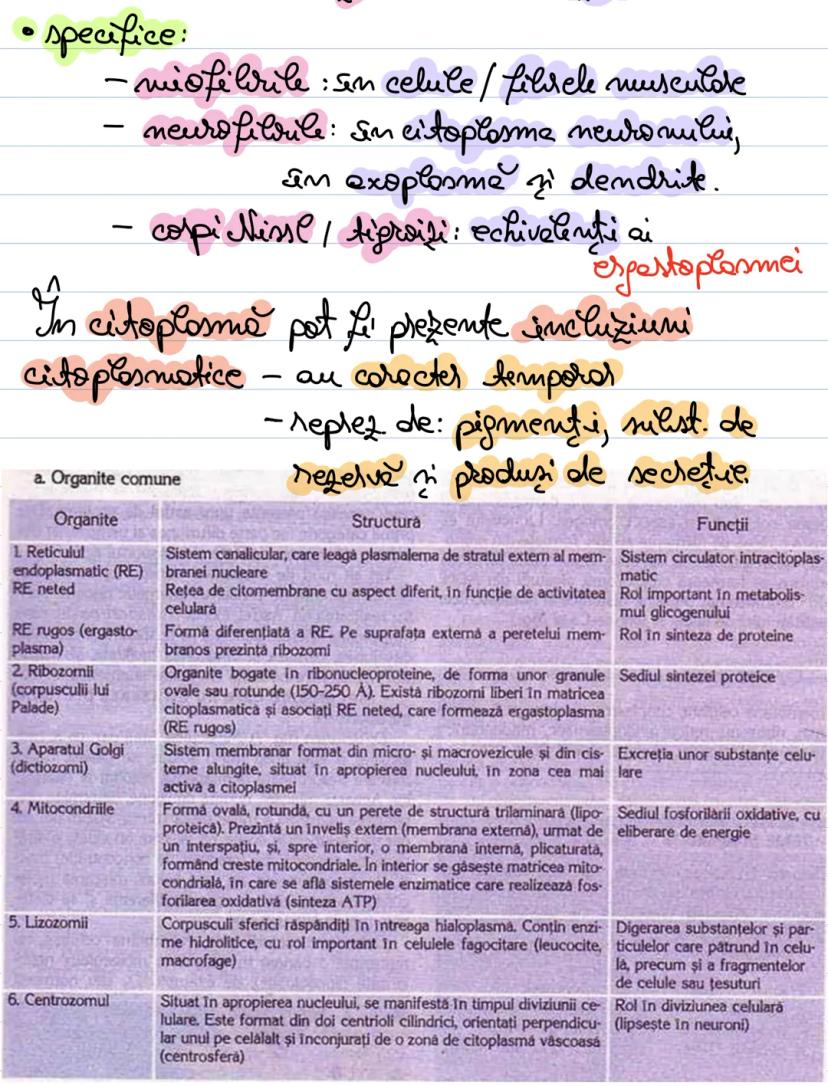 • specifice:
- miofibrile : în celule / fibrele musculare
- neurofibrile: în citoplasma neuronului,
în axoplasmă și dendrite.
- corpi Nissl / tigroizi: echivalenți ai
ergastoplasmei
În citoplasmă pot fi prezente incluziuni
citoplasmatice - au caracter temporar
- reprez. de: pigmenți, subst. de
rezervă și produși de secreție.
a. Organite comune
Organite Structură Funcții
1. Reticulul Sistem canalicular, care leagă plasmalema de stratul extern al mem- Sistem circulator intracitoplas-
endoplasmatic (RE) branei nucleare matic
RE neted Rețea de citomembrane cu aspect diferit, în funcție de activitatea Rol important în metabolis-
celulară mul glicogenului
RE rugos (ergasto- Formă diferențiată a RE. Pe suprafața externă a peretelui mem- Rol în sinteza de proteine
plasma) branos prezintă ribozomi
2. Ribozomii Organite bogate în ribonucleoproteine, de forma unor granule Sediul sintezei proteice
(corpusculii lui ovale sau rotunde (150-250 Å). Există ribozomi liberi în matricea
Palade) citoplasmatică și asociați RE neted, care formează ergastoplasma
(RE rugos)
3. Aparatul Golgi Sistem membranar format din micro- și macrovezicule și din cis- Excreția unor substanțe celu-
(dictiozomi) terne alungite, situat în apropierea nucleului, în zona cea mai lare
activă a citoplasmei
4. Mitocondriile Formă ovală, rotundă, cu un perete de structură trilaminară (lipo- Sediul fosforilării oxidative, cu
proteică). Prezintă un înveliș extern (membrana externă), urmat de eliberare de energie
un interspațiu, și, spre interior, o membrană internă, plicaturată,
formând creste mitocondriale. În interior se găsește matricea mito-
condrială, în care se află sistemele enzimatice care realizează fos-
forilarea oxidativă (sinteza ATP)
5. Lizozomii Corpusculi sferici răspândiți în întreaga hialoplasmă. Conțin enzi- Digerarea substanțelor și par-
me hidrolitice, cu rol important în celulele fagocitare (leucocite, ticulelor care pătrund în celu-
macrofage) lă, precum și a fragmentelor
de celule sau țesuturi
6. Centrozomul Situat în apropierea nucleului, se manifestă în timpul diviziunii ce- Rol în diviziunea celulară
lulare. Este format din doi centrioli cilindrici, orientați perpendicu- (lipsește în neuroni)
lar unul pe celălalt și înconjurați de o zonă de citoplasmă vâscoasă
(centrosferă)